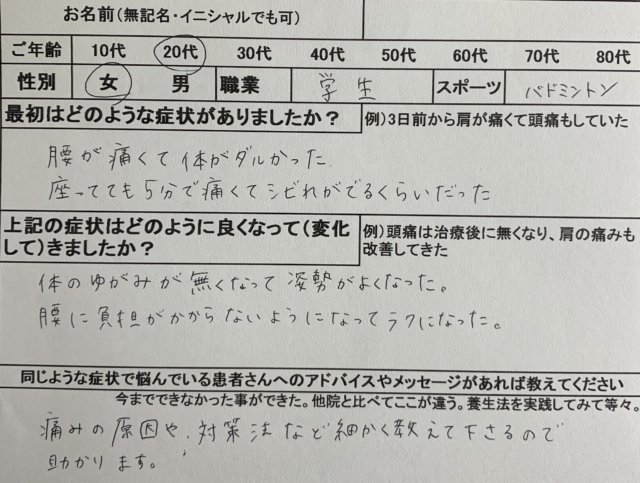 お名前(無記名・イニシャルでも可)
ご年齢 10代 20代 30代 40代 50代 60代 70代 80代
性別 女 男 職業 学生 スポーツ バドミントン
最初はどのような症状がありましたか？ 例)3日前から肩が痛くて頭痛もしていた
腰が痛くて体がダルかった.
座ってても5分で痛くてシビれがでるくらいだった
上記の症状はどのように良くなって(変化して)きましたか？
例)頭痛は治療後に無くなり、肩の痛みも改善してきた
体のゆがみが無くなって姿勢がよくなった。
腰に負担がかからないようになってラクになった。
同じような症状で悩んでいる患者さんへのアドバイスやメッセージがあれば教えてください
今までできなかった事ができた。他院と比べてここが違う。養生法を実践してみて等々。
痛みの原因や、対策法など細かく教えて下さるので
助かります。